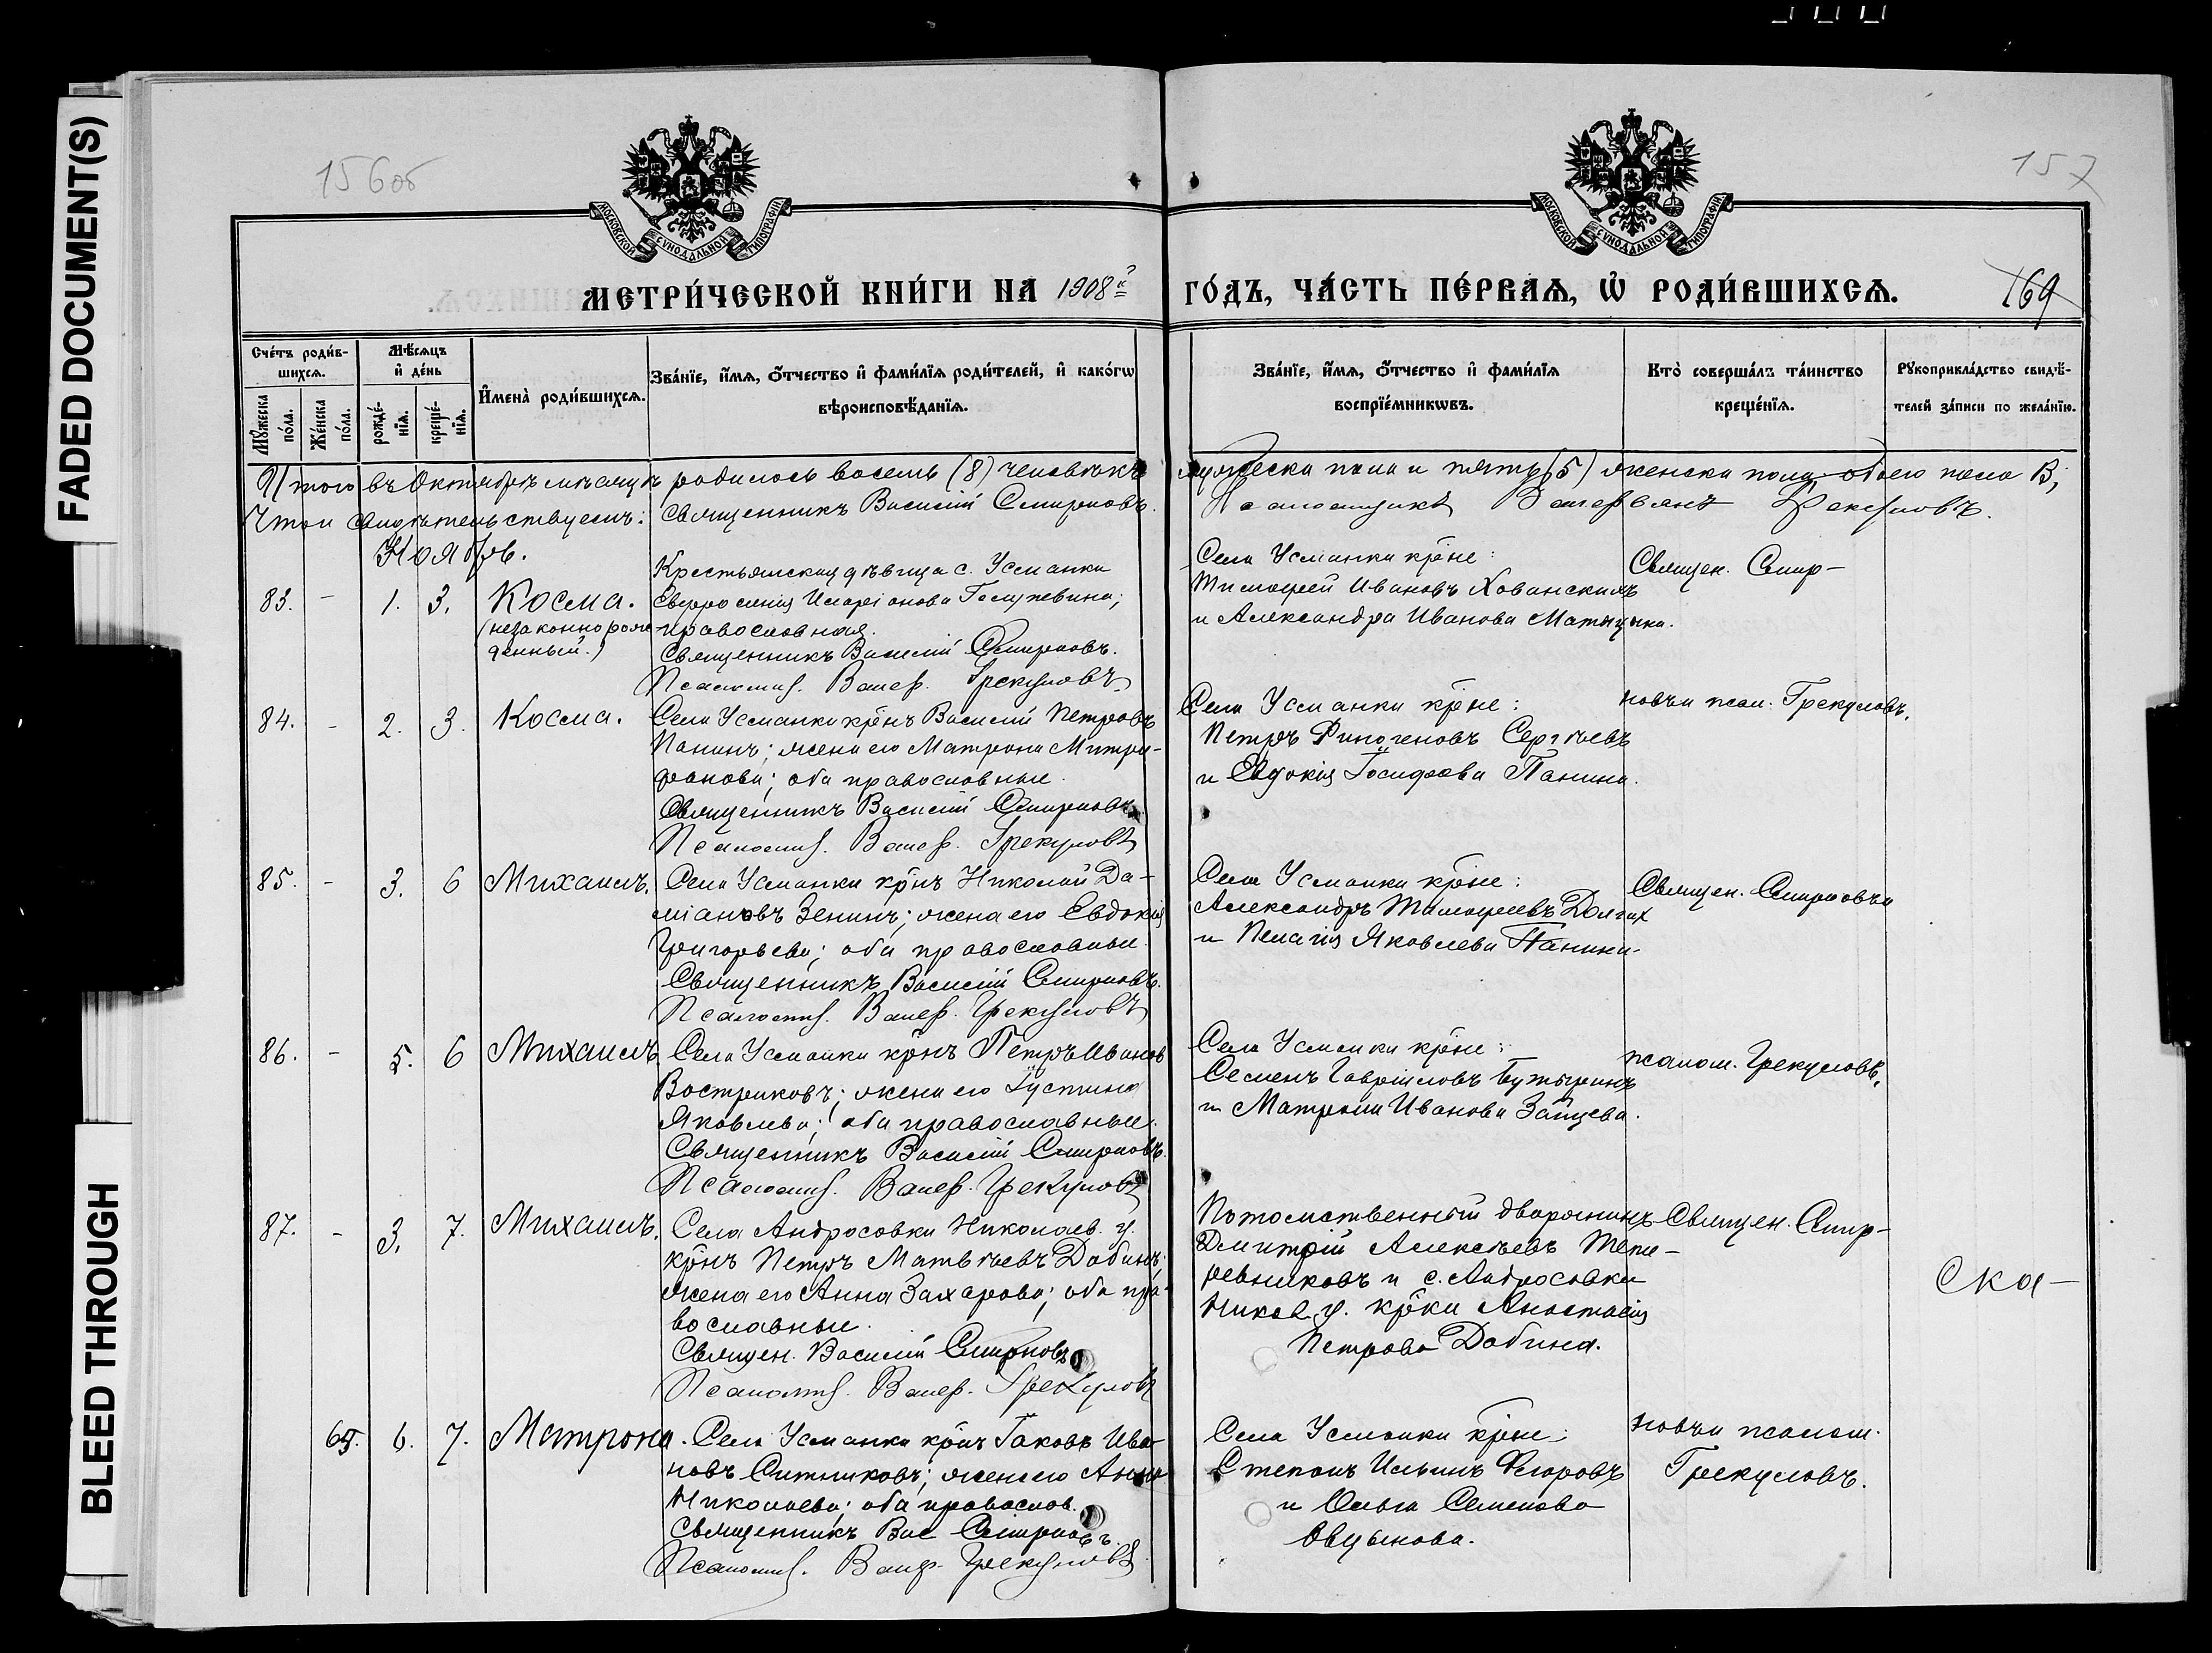 FADED DOCUMENT(S)
BLEED THROUGH
156об
157
МОСКОВСКОЙ СѴНОДАЛЬНОЙ ТИПОГРАФІИ
МОСКОВСКОЙ СѴНОДАЛЬНОЙ ТИПОГРАФІИ
МЕТРИ́ЧЕСКОЙ КНИ́ГИ НА 1908й ГО́ДЪ, ЧА́СТЬ ПЕ́РВАѦ, Ѡ҆ РОДИ́ВШИХСѦ.
169
Сче́тъ роди́в-
шихсѧ.
Мꙋ́жеска по́ла.
Же́нска по́ла.
Мѣ́сѧцъ
и҆ де́нь
рожде́-
нїѧ.
креще́-
нїѧ.
И҆мена̀ роди́вшихсѧ.
Зва́нїе, и҆́мѧ, ѻ҆́тчество и҆ фами́лїѧ роди́телей, и҆ како́гѡ
вѣроисповѣ́данїѧ.
Зва́нїе, и҆́мѧ, ѻ҆́тчество и҆ фами́лїѧ
воспрїе́мникѡвъ.
Кто̀ соверша́лъ та́инство
креще́нїѧ.
Рꙋкоприкла́дство свидѣ́-
телей за́писи по жела́нїю.
Итого въ Октябрѣ мѣсяцѣ родилось восемь (8) человѣкъ мужеска пола и пять (5) женска пола, обоего пола 13;
Что и свидѣтельствуемъ: Священникъ Василій Смирновъ. Псаломщикъ Грекуловъ.
Ноябрь.
83. - 1. 3. Косма.
(незаконнорож-
денный.)
Крестьянская дѣвица с. Усманки
Иларіонова
православная.
Священникъ Василій Смирновъ.
Псаломщ. Валер. Грекуловъ
Села Усманки кр̃не:
Тимофей Ивановъ Хованскихъ
и Александра Иванова Матыцына.
Священ. Смир-
84. - 2. 3. Косма.
Села Усманки кр̃нъ Василій Петровъ
Панинъ; жена его Матрона Митро-
фанова; оба православные.
Священникъ Василій Смирновъ
Псаломщ. Валер. Грекуловъ
Села Усманки кр̃не:
Петръ Финогеновъ Сергѣевъ
и Евдокія Іосифова Панина.
новъ и псал. Грекуловъ.
85. - 3. 6 Михаилъ.
Села Усманки кр̃нъ Николай Да-
міановъ Зенинъ; жена его Евдокія
Григорьева; оба православные.
Священникъ Василій Смирновъ.
Псаломщ. Валер. Грекуловъ
Села Усманки кр̃не:
Александръ Тимофеевъ Долгих
и Пелагія Яковлева Панина.
Священ. Смирновъ и
86. - 5. 6 Михаилъ
Села Усманки кр̃нъ Петръ Иванов
Востриковъ; жена его Іустина
Яковлева; оба православные.
Священникъ Василій Смирновъ.
Псаломщ. Валер. Грекуловъ
Села Усманки кр̃не:
Семенъ Гавріиловъ Бутыринъ
и Матрона Иванова Зайцева.
псалом. Грекуловъ.
87. - 3. 7. Михаилъ.
Села Андросовки Николаев. у.
кр̃нъ Петръ Матвѣевъ Дабинъ;
жена его Анна Захарова; оба пра-
вославные.
Священ. Василій Смирновъ
Псаломщ. Валер. Грекуловъ
Потомственный дворянинъ
Дмитрій Алексѣевъ Тете-
ревниковъ и с. Андросовки
Никол. у. кр̃ка Анастасія
Петрова Дабина.
Священ. Смир-
Ска-
65. 6. 7. Матрона.
Села Усманки кр̃нъ Іаковъ Ива-
новъ Ситниковъ; жена его Анна
Николаева; оба православ.
Священникъ Вас Смирновъ.
Псаломщ. Валер. Грекуловъ
Села Усманки кр̃не:
Степанъ Ильинъ Егоровъ
и Ольга Семенова
Овцынова.
новъ и псалом.
Грекуловъ.